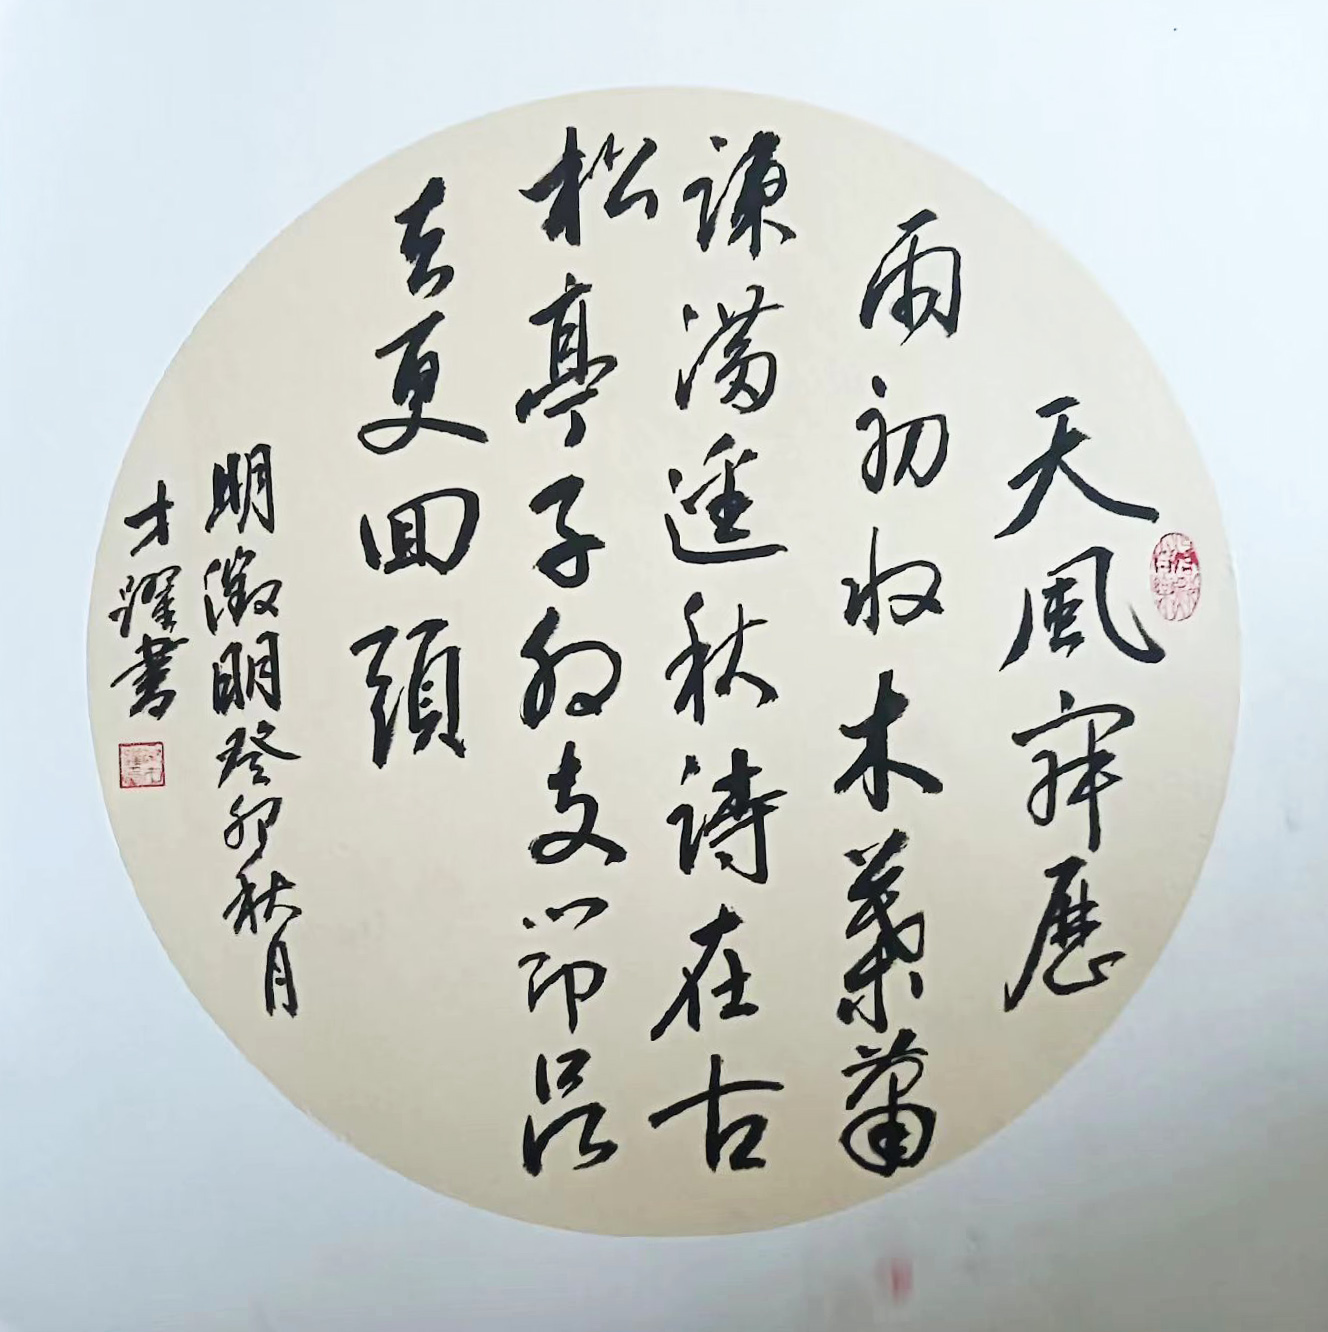 天風寂歷
雨初收木葉蕭
疎滿逕秋詩在古
松亭子外支筇
去更回頭
明徵明癸卯秋月
才躍書